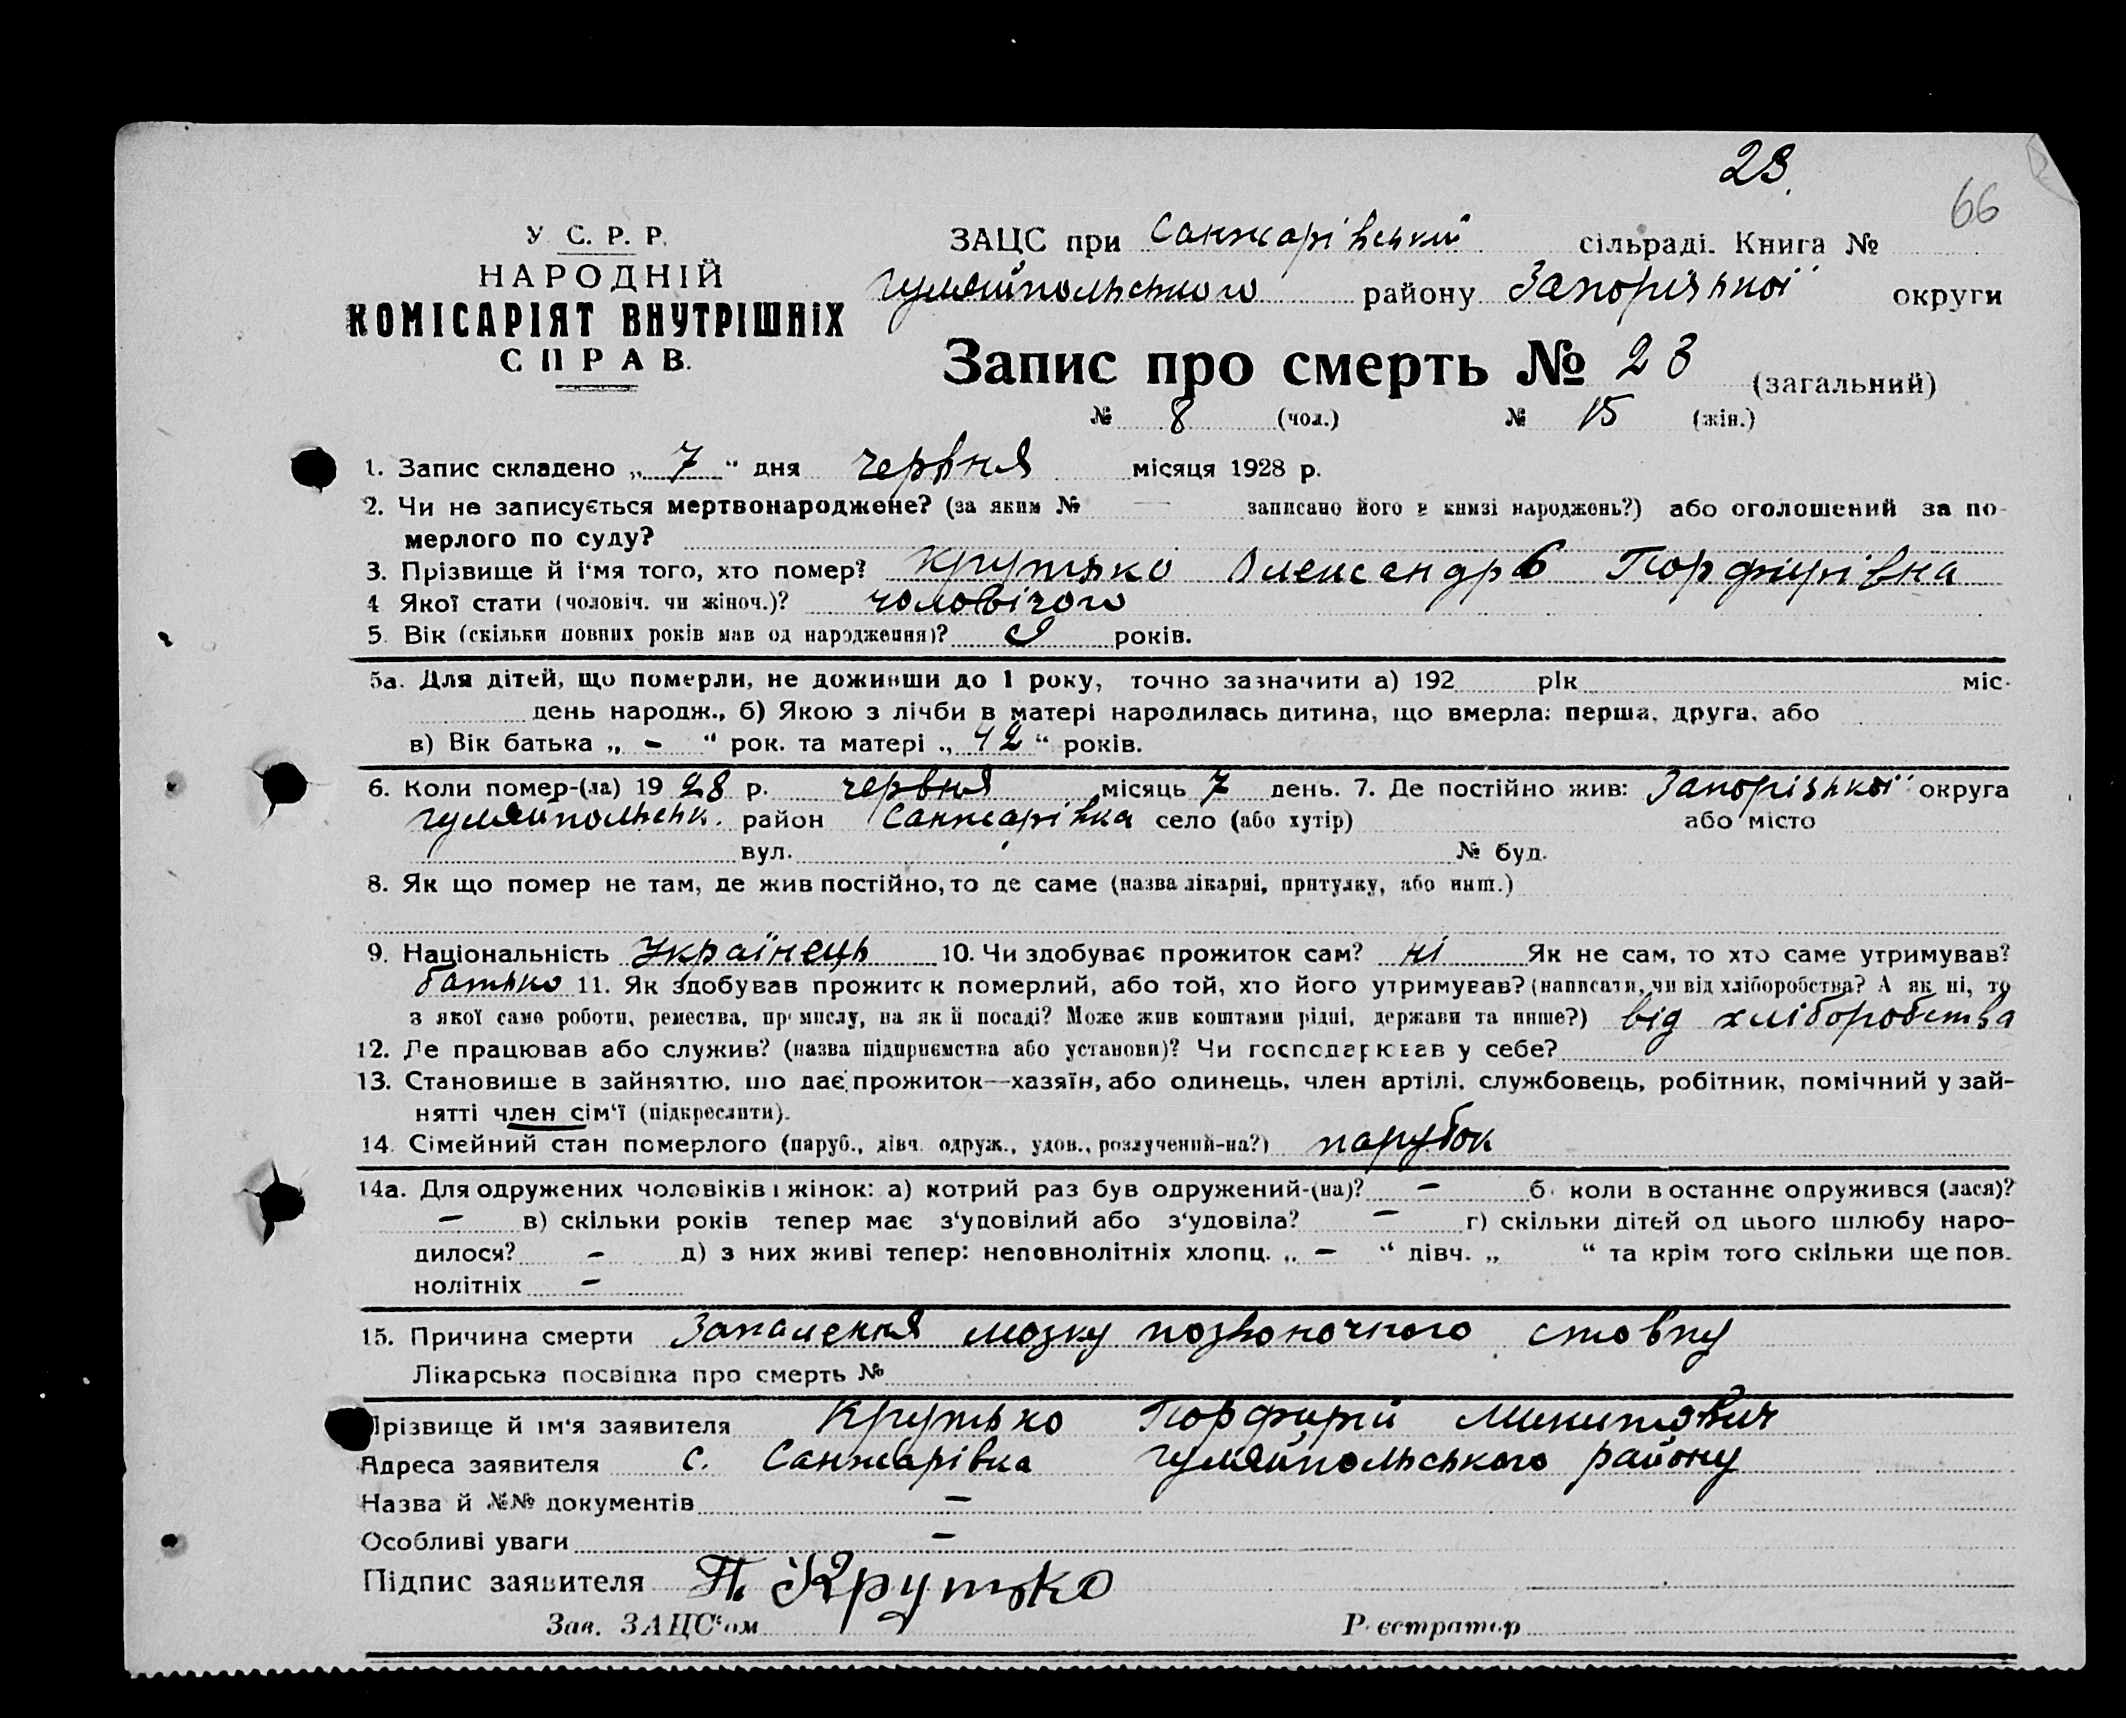 23.
66
У. С. Р. Р.
НАРОДНІЙ
КОМІСАРІЯТ ВНУТРІШНІХ
СПРАВ.
ЗАЦС при Санжарівський сільраді. Книга №
Гуляйпольського району Запорізької округи
Запис про смерть № 23 (загальний)
№ 8 (чол.) № 15 (жін.)
1. Запис складено „ 7 “ дня червня місяця 1928 р.
2. Чи не записується мертвонароджене? (за яким № — записано його в книзі народжень?) або оголошений за по-
мерлого по суду?
3. Прізвище й і‘мя того, хто помер? Крутько Олександр Порфирівна
4 Якої стати (чоловіч. чи жіноч.)? чоловічого
5. Вік (скільки повних років мав од народження)? 9 років.
5а. Для дітей, що померли, не доживши до 1 року, точно зазначити а) 192 рік міс.
день народж., б) Якою з лічби в матері народилась дитина, що вмерла: перша, друга, або
в) Вік батька „ - “ рок. та матері „ 42 “ років.
6. Коли помер-(ла) 19 28 р. червня місяць 7 день. 7. Де постійно жив: Запорізької округа
Гуляйпольськ. район Санжарівка село (або хутір) або місто
вул. № буд.
8. Як що помер не там, де жив постійно, то де саме (назва лікарні, притулку, або инш.)
9. Національність Українець 10. Чи здобуває прожиток сам? ні Як не сам, то хто саме утримував?
батько 11. Як здобував прожиток померлий, або той, хто його утримував? (написати, чи від хліборобства? А як ні, то
з якої саме роботи, ремества, промислу, на якій посаді? Може жив коштами рідні, держави та инше?) від хліборобства
12. Де працював або служив? (назва підприємства або установи)? Чи господарював у себе?
13. Становище в зайняттю, що дає прожиток—хазяїн, або одинець, член артілі, службовець, робітник, помічний у зай-
нятті член сім‘ї (підкреслити).
14. Сімейний стан померлого (паруб., дівч. одруж., удов., розлучений-на?) парубок
14а. Для одружених чоловіків і жінок: а) котрий раз був одружений-(на)? - б) коли в останнє одружився (лася)?
- в) скільки років тепер має з‘удовілий або з‘удовіла? - г) скільки дітей од цього шлюбу наро-
дилося? - д) з них живі тепер: неповнолітніх хлопц. „ - “ дівч. „ “ та крім того скільки ще пов.
нолітніх -
15. Причина смерти Запалення мозку позвоночного стовпу
Лікарська посвідка про смерть №
Прізвище й ім‘я заявителя Крутько Порфирій Микитович
Адреса заявителя с. Санжарівка Гуляйпольського району
Назва й №№ документів -
Особливі уваги -
Підпис заявителя П. Крутько
Зав. ЗАЦС‘ом Реєстратор